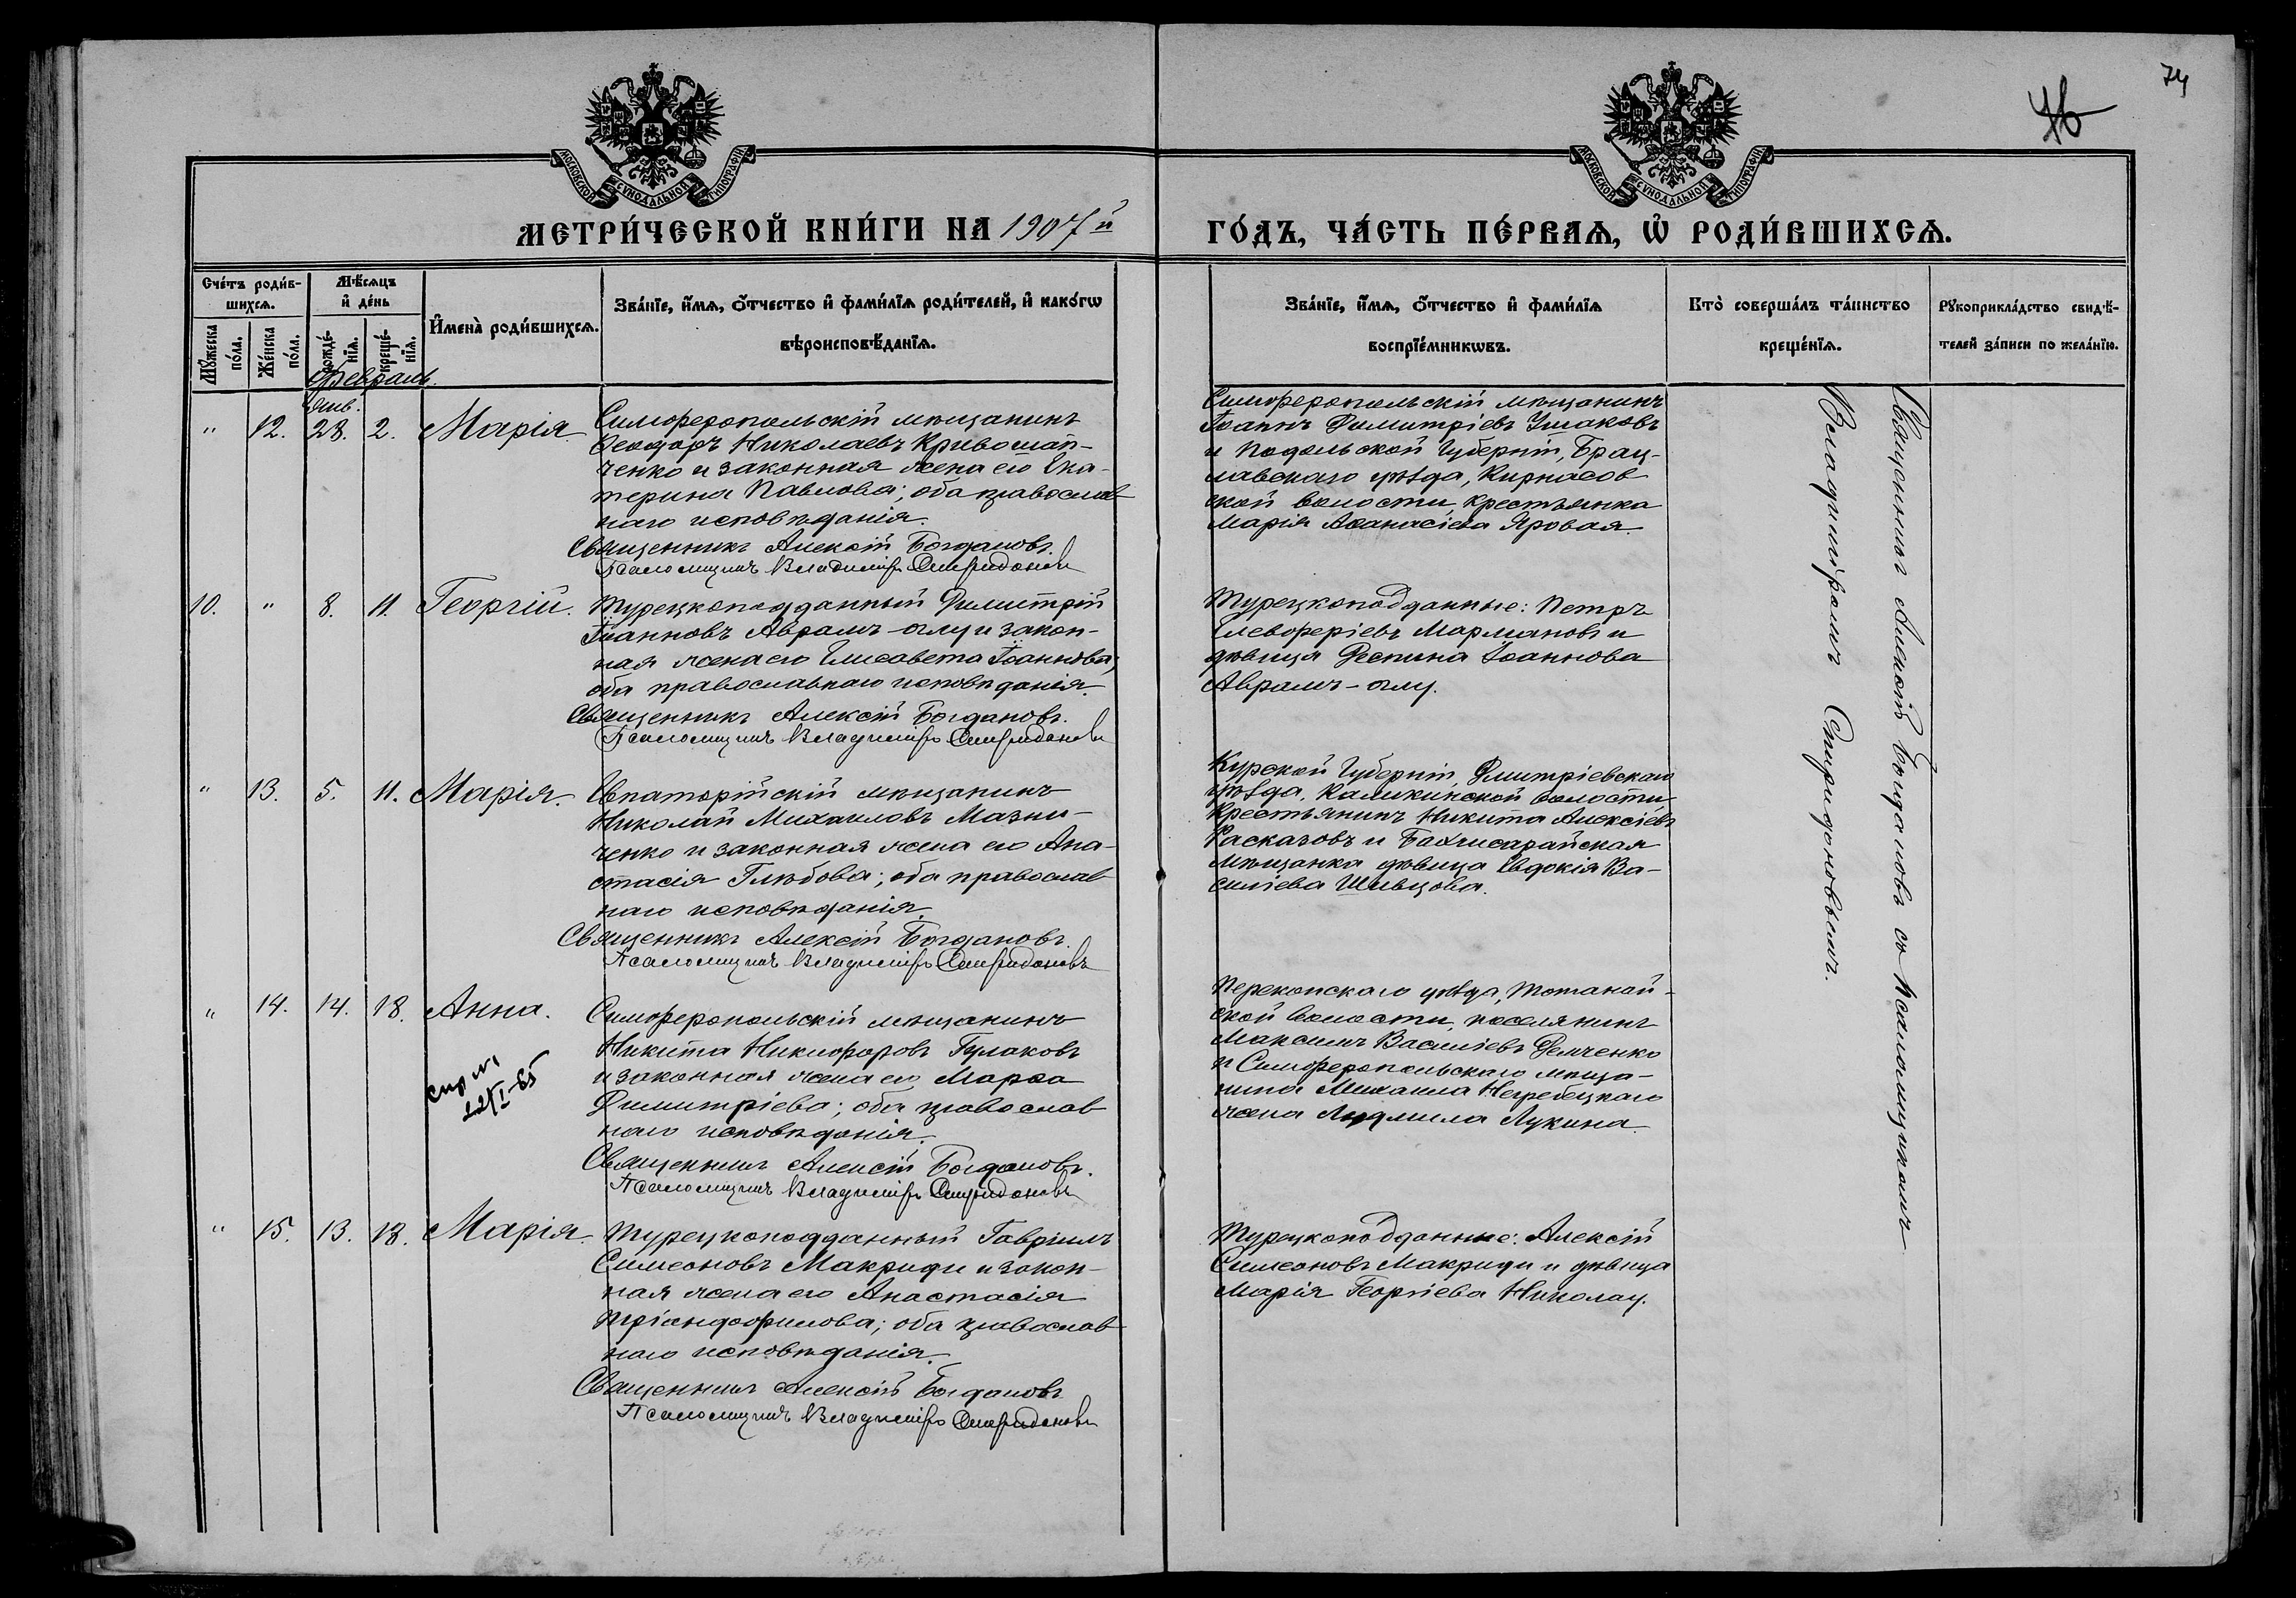 74
46
МОСКОВСКОЙ СѴНОДАЛЬНОЙ ТИПОГРАФІИ
МОСКОВСКОЙ СѴНОДАЛЬНОЙ ТИПОГРАФІИ
МЕТРИ́ЧЕСКОЙ КНИ́ГИ НА 1907й
ГО́ДЪ, ЧА́СТЬ ПЕ́РВАѦ, Ѡ҆ РОДИ́ВШИХСѦ.
Сче́тъ роди́в-
шихсѧ.
Мꙋ́жеска по́ла.
Же́нска по́ла.
Мѣ́сѧцъ
и҆ де́нь
рожде́-нїѧ.
креще́-нїѧ.
И҆мена̀ роди́вшихсѧ.
Зва́нїе, и҆́мѧ, ѻ҆́тчество и҆ фами́лїѧ роди́телей, и҆ како́гѡ
вѣроисповѣ́данїѧ.
Зва́нїе, и҆́мѧ, ѻ҆́тчество и҆ фами́лїѧ
воспрїе́мникѡвъ.
Кто̀ соверша́лъ та́инство
креще́нїѧ.
Рꙋкоприкла́дство свидѣ́-
телей за́писи по жела́нїю.
Февраль.
Янв.
" 12. 28. 2. Марія.
Симферопольскій мѣщанинъ
Ѳеодоръ Николаевъ Кривошап-
ченко и законная жена его Ека-
терина Павлова; оба православ
наго исповѣданія.
Священникъ Алексій Богдановъ.
Псаломщикъ Владиміръ Спиридоновъ
Симферопольскій мѣщанинъ
Іоаннъ Димитріевъ Ушаковъ
и Подольской Губерніи, Брац-
лавскаго уѣзда, Кирнасов
ской волости, крестьянка
Марія Аѳанасіева Яровая.
10. " 8. 11. Георгій.
Турецкоподданный Димитрій
Іоанновъ Аврамъ-оглу и закон-
ная жена его Елисавета Іоаннова;
оба православнаго исповѣданія.
Священникъ Алексій Богдановъ.
Псаломщикъ Владиміръ Спиридоновъ
Турецкоподданные: Петръ
Елевферіевъ Мармановъ и
дѣвица Деспина Іоаннова
Аврамъ-оглу.
" 13. 5. 11. Марія.
Евпаторійскій мѣщанинъ
Николай Михаиловъ Мазни-
ченко и законная жена его Ана-
стасія Глѣбова; оба православ
наго исповѣданія.
Священникъ Алексій Богдановъ.
Псаломщикъ Владиміръ Спиридоновъ
Курской Губерніи, Дмитріевскаго
уѣзда, Каликинской волости
крестьянинъ Никита Алексіевъ
Расказовъ и Бахчисарайская
мѣщанка дѣвица Евдокія Ва-
силіева Шевцова.
" 14. 14. 18. Анна.
спр №1
22/I-65
Симферопольскій мѣщанинъ
Никита Никифоровъ Гулаковъ
и законная жена его Марѳа
Димитріева; оба православ
наго исповѣданія.
Священникъ Алексій Богдановъ.
Псаломщикъ Владиміръ Спиридоновъ
Перекопскаго уѣзда, Тотанай-
ской волости, поселянинъ
Максимъ Василіевъ Демченко
и Симферопольскаго мѣща-
нина Михаила Негребецкаго
жена Людмила Лукина.
" 15. 13. 18. Марія.
Турецкоподданный Гавріилъ
Симеоновъ Макриди и закон-
ная жена его Анастасія
Тріандофилова; оба православ
наго исповѣданія.
Священникъ Алексій Богдановъ
Псаломщикъ Владиміръ Спиридоновъ
Турецкоподданные: Алексій
Симеоновъ Макриди и дѣвица
Марія Георгіева Николау.
Священникъ Алексій Богдановъ съ псаломщикомъ
Владиміромъ Спиридоновымъ.